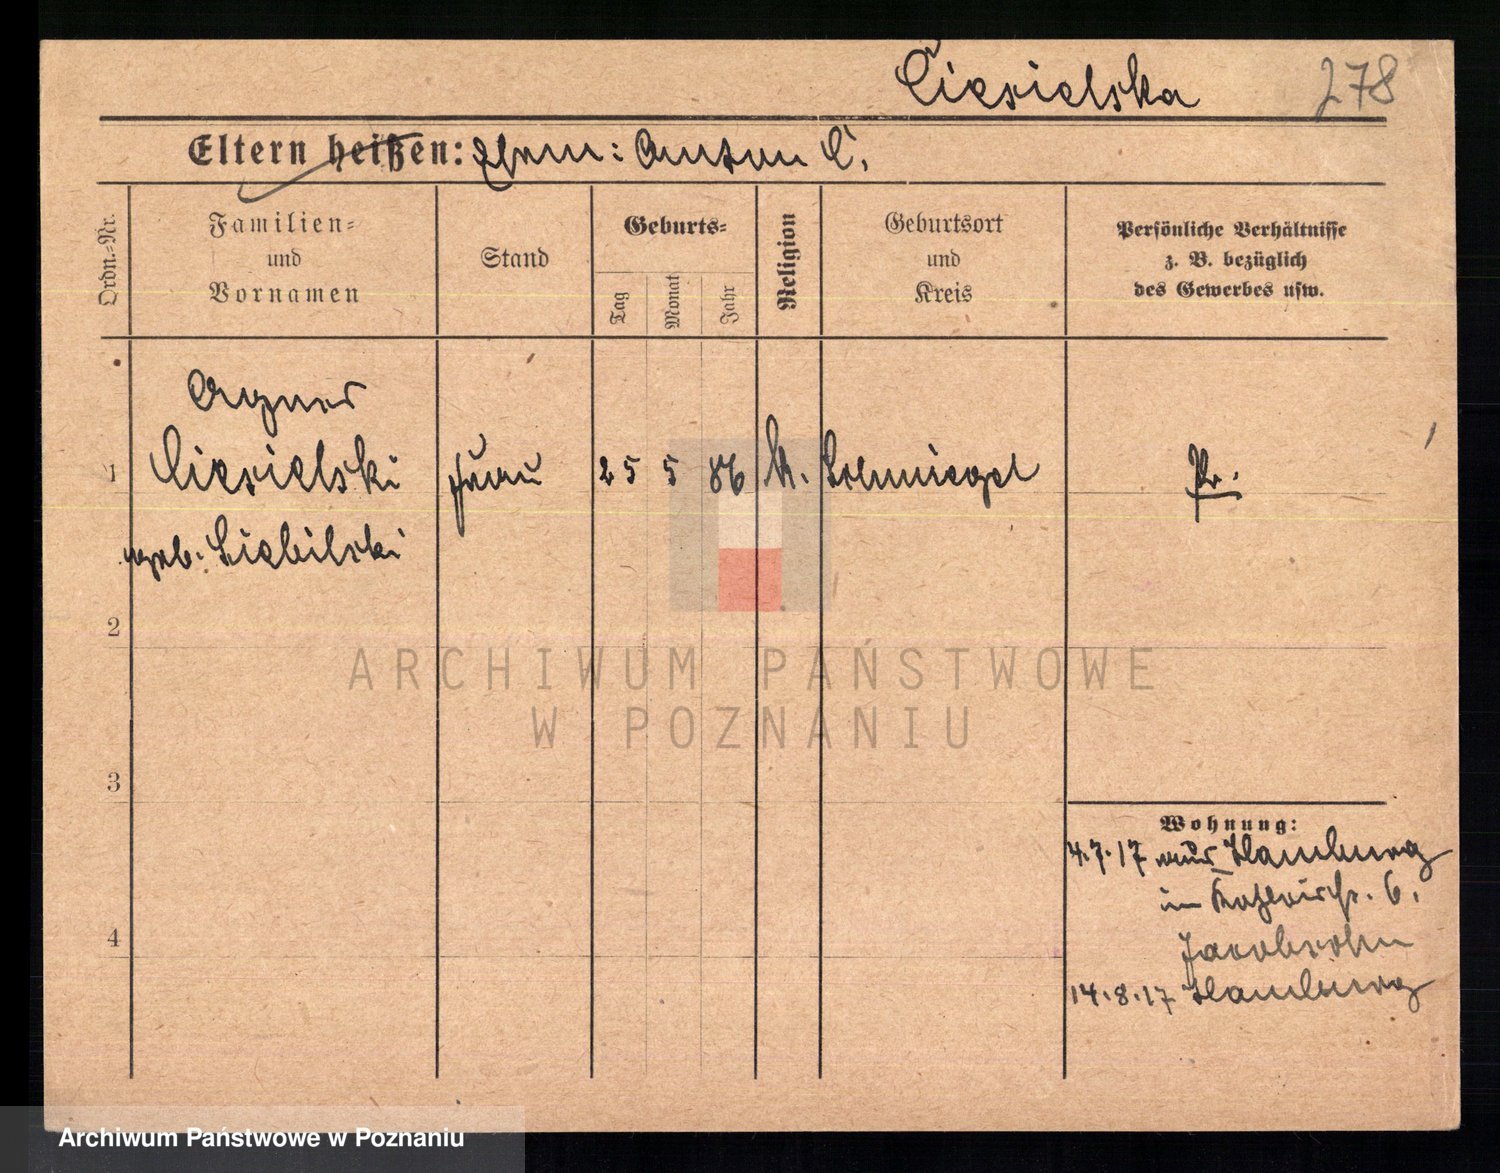 Ciesielska 278
Eltern heißen: Ehem: Anton C.
Ordn.-Nr.
Familien-
und
Vornamen
Stand
Geburts-
Tag
Monat
Jahr
Religion
Geburtsort
und
Kreis
Persönliche Verhältnisse
z. B. bezüglich
des Gewerbes usw.
Agnes
1 Ciesielski Frau 25 5 86 k. Schmiegel Pr.
geb.
2
ARCHIWUM PAŃSTWOWE
W POZNANIU
3
Wohnung:
4.7.17 aus Hamburg
in 6.
4
Jacobsohn
14.8.17 Hamburg
Archiwum Państwowe w Poznaniu